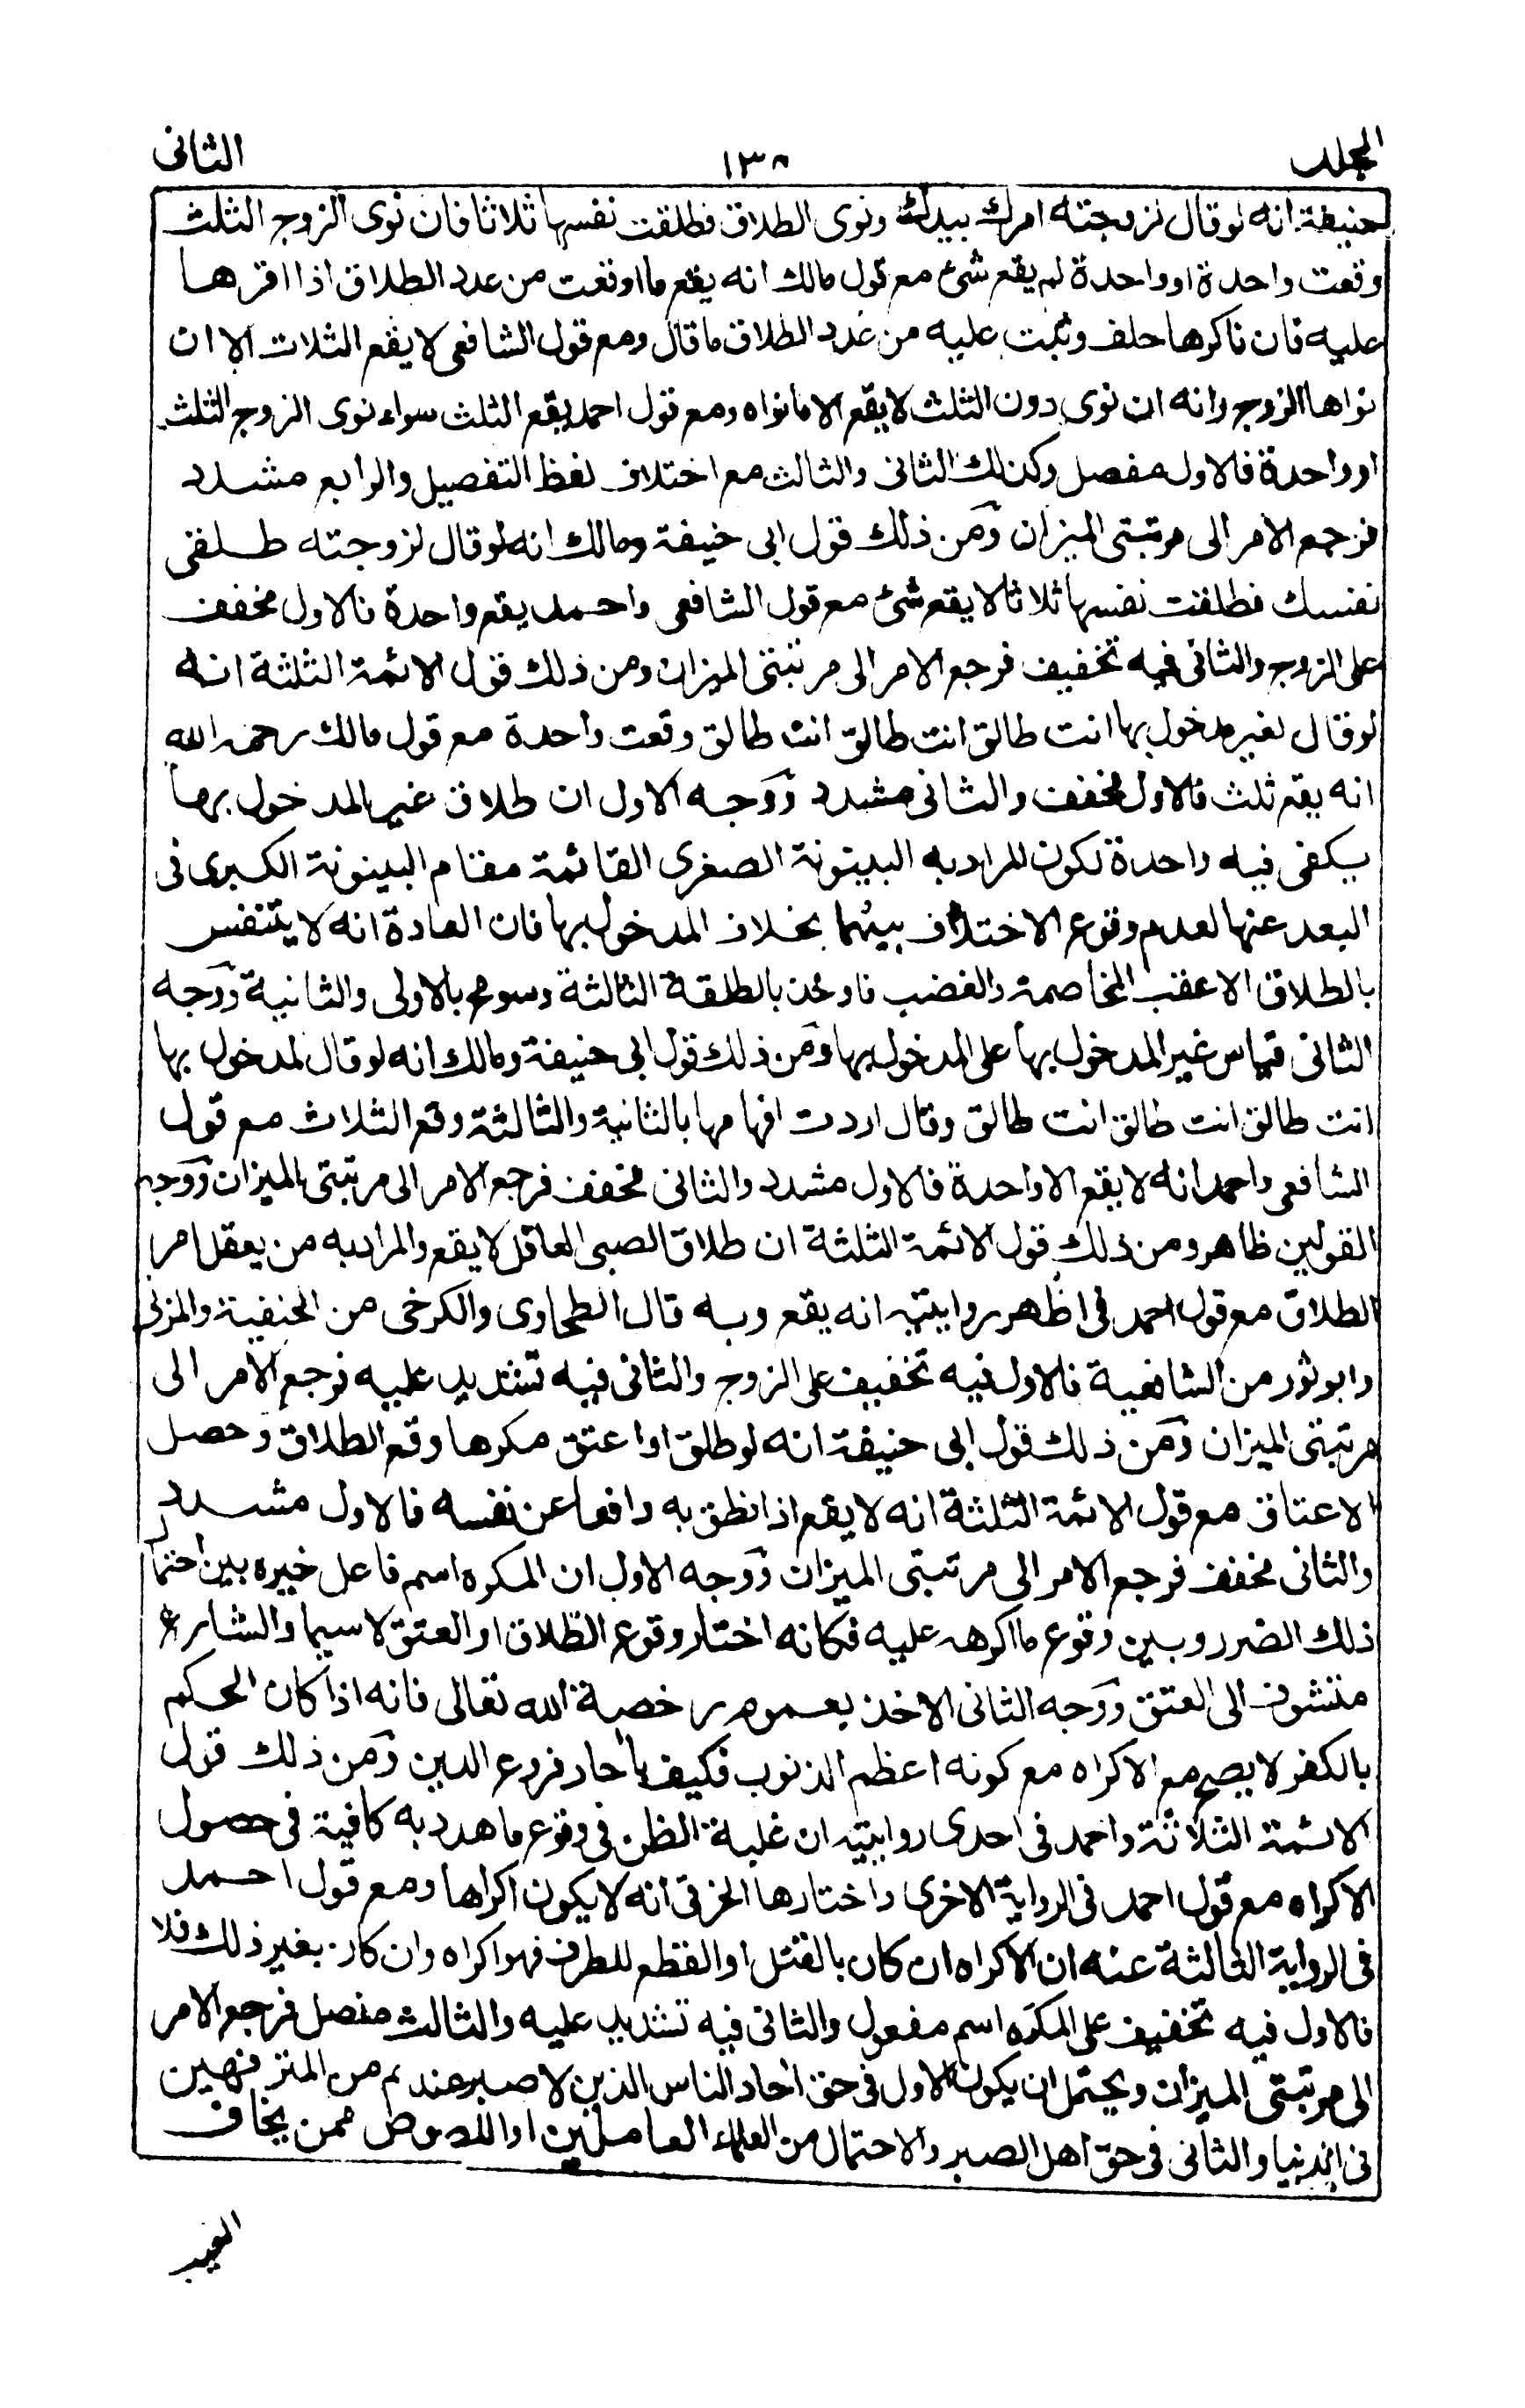 المجلد
١٣٨
الثانی
حنیفة انه لو قال لزوجته امرك بیدك ونوی الطلاق فطلقت نفسها ثلاثا فان نوی الزوج الثلث
وقعت واحدة او واحدة لم یقع شئ مع قول مالك انه یقع ما اوقعت من عدد الطلاق اذا اقرها
علیه فان ناکرها حلف وثبت علیه من عدد الطلاق ما قال ومع قول الشافعی لا یقع الثلاث الا ان
نواها الزوج وانه ان نوی دون الثلث لا یقع الا ما نواه ومع قول احمد یقع الثلث سواء نوی الزوج الثلث
او واحدة فالاول مفصل وکذلك الثانی والثالث مع اختلاف لفظ التفصیل والرابع مشدد
فرجع الامر الی مرتبتی المیزان ومن ذلك قول ابی حنیفة ومالك انه لو قال لزوجته طلقی
نفسك فطلقت نفسها ثلاثا لا یقع شئ مع قول الشافعی واحمد یقع واحدة فالاول مخفف
علی الزوج والثانی فیه تخفیف فرجع الامر الی مرتبتی المیزان ومن ذلك قول الائمة الثلثة انه
لو قال لغیر مدخول بها انت طالق انت طالق انت طالق وقعت واحدة مع قول مالك رحمه الله
انه یقع ثلث فالاول مخفف والثانی مشدد ووجه الاول ان طلاق غیر المدخول بها
یکفی فیه واحدة لکون المراد به البینونة الصغری القائمة مقام البینونة الکبری فی
البعد عنها لعدم وقوع الاختلاف بینهما بخلاف المدخول بها فان العادة انه لا یتنفس
بالطلاق الا عقب المخاصمة والغضب فاوخذ بالطلقة الثالثة وسومح بالاولی والثانیة ووجه
الثانی قیاس غیر المدخول بها علی المدخول بها ومن ذلك قول ابی حنیفة ومالك انه لو قال لمدخول بها
انت طالق انت طالق انت طالق وقال اردت افهامها بالثانیة والثالثة وقع الثلاث مع قول
الشافعی واحمد انه لا یقع الا واحدة فالاول مشدد والثانی مخفف فرجع الامر الی مرتبتی المیزان ووجه
القولین ظاهر ومن ذلك قول الائمة الثلثة ان طلاق الصبی العاقل لا یقع والمراد به من یعقل امر
الطلاق مع قول احمد فی اظهر روایتیه انه یقع وبه قال الطحاوی والکرخی من الحنفیة والمزنی
وابو ثور من الشافعیة فالاول فیه تخفیف علی الزوج والثانی فیه تشدید علیه فرجع الامر الی
مرتبتی المیزان ومن ذلك قول ابی حنیفة انه لو طلق او اعتق مکرها وقع الطلاق وحصل
الاعتاق مع قول الائمة الثلثة انه لا یقع اذا نطق به دافعا عن نفسه فالاول مشدد
والثانی مخفف فرجع الامر الی مرتبتی المیزان ووجه الاول ان المکره اسم فاعل خیره بین احتمال
ذلك الضرر وبین وقوع ما اکرهه علیه فکانه اختار وقوع الطلاق او العتق لا سیما والشارع
متشوف الی العتق ووجه الثانی الاخذ بعموم رخصة الله تعالی فانه اذا کان الحکم
بالکفر لا یصح مع الاکراه مع کونه اعظم الذنوب فکیف باحاد فروع الدین ومن ذلك قول
الائمة الثلاثة واحمد فی احدی روایتیه ان غلبة الظن فی وقوع ما هدد به کافیة فی حصول
الاکراه مع قول احمد فی الروایة الاخری واختارها الخرقی انه لا یکون اکراها ومع قول احمد
فی الروایة الثالثة عنه ان الاکراه ان کان بالقتل او القطع للطرف فهو اکراه وان کان بغیر ذلك فلا
فالاول فیه تخفیف علی المکره اسم مفعول والثانی فیه تشدید علیه والثالث مفصل فرجع الامر
الی مرتبتی المیزان ویحتمل ان یکون الاول فی حق احاد الناس الذین لا صبر عندهم من المترفهین
فی الدنیا والثانی فی حق اهل الصبر والاحتمال من العلماء العاملین او اللصوص ممن یخاف